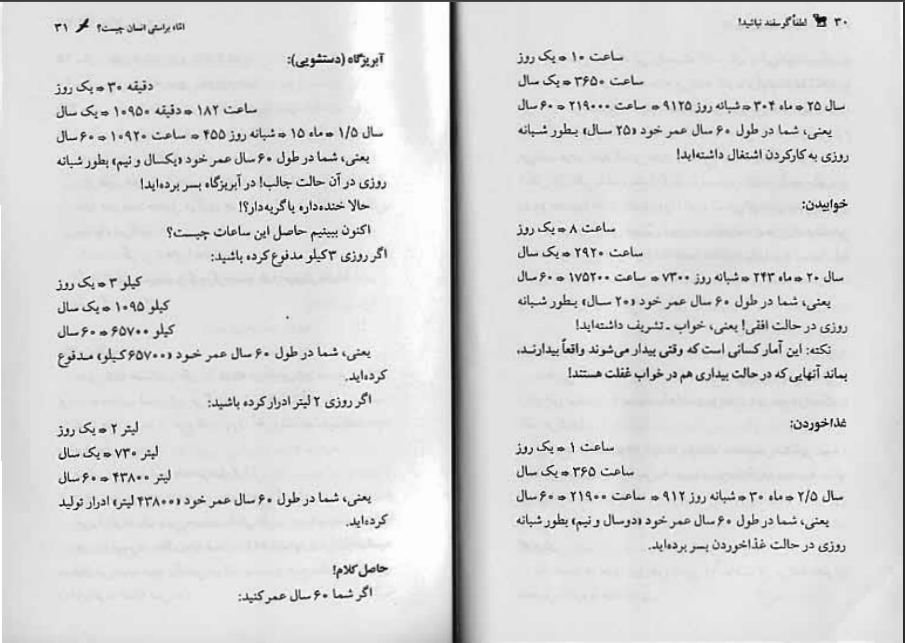 ۳۰ لطفاً گوسفند نباشید!
ساعت ۱۰ ⇐ یک روز
ساعت ۳۶۵۰ ⇐ یک سال
سال ۲۵ ⇐ ماه ۳۰۴ ⇐ شبانه روز ۹۱۲۵ ⇐ ساعت ۲۱۹۰۰۰ ⇐ ۶۰ سال
یعنی، شما در طول ۶۰ سال عمر خود «۲۵ سال» بطور شبانه
روزی به کارکردن اشتغال داشته‌اید!
خوابیدن:
ساعت ۸ ⇐ یک روز
ساعت ۲۹۲۰ ⇐ یک سال
سال ۲۰ ⇐ ماه ۲۴۳ ⇐ شبانه روز ۷۳۰۰ ⇐ ساعت ۱۷۵۲۰۰ ⇐ ۶۰ سال
یعنی، شما در طول ۶۰ سال عمر خود «۲۰ سال» بطور شبانه
روزی در حالت افقی! یعنی، خواب ـ تشریف داشته‌اید!
نکته: این آمار کسانی است که وقتی بیدار می‌شوند واقعاً بیدارند،
بماند آنهایی که در حالت بیداری هم در خواب غفلت هستند!
غذاخوردن:
ساعت ۱ ⇐ یک روز
ساعت ۳۶۵ ⇐ یک سال
سال ۲/۵ ⇐ ماه ۳۰ ⇐ شبانه روز ۹۱۲ ⇐ ساعت ۲۱۹۰۰ ⇐ ۶۰ سال
یعنی، شما در طول ۶۰ سال عمر خود «دوسال و نیم» بطور شبانه
روزی در حالت غذاخوردن بسر برده‌اید.
امّا، براستی انسان چیست؟ ۳۱
آبریزگاه (دستشویی):
دقیقه ۳۰ ⇐ یک روز
ساعت ۱۸۲ ⇐ دقیقه ۱۰۹۵۰ ⇐ یک سال
سال ۱/۵ ⇐ ماه ۱۵ ⇐ شبانه روز ۴۵۵ ⇐ ساعت ۱۰۹۲۰ ⇐ ۶۰ سال
یعنی، شما در طول ۶۰ سال عمر خود «یکسال و نیم» بطور شبانه
روزی در آن حالت جالب! در آبریزگاه بسر برده‌اید!
حالا خنده‌داره یا گریه‌دار؟!
اکنون ببینیم حاصل این ساعات چیست؟
اگر روزی ۳ کیلو مدفوع کرده باشید:
کیلو ۳ ⇐ یک روز
کیلو ۱۰۹۵ ⇐ یک سال
کیلو ۶۵۷۰۰ ⇐ ۶۰ سال
یعنی، شما در طول ۶۰ سال عمر خود «۶۵۷۰۰ کیلو» مدفوع
کرده‌اید.
اگر روزی ۲ لیتر ادرار کرده باشید:
لیتر ۲ ⇐ یک روز
لیتر ۷۳۰ ⇐ یک سال
لیتر ۴۳۸۰۰ ⇐ ۶۰ سال
یعنی، شما در طول ۶۰ سال عمر خود «۴۳۸۰۰ لیتر» ادرار تولید
کرده‌اید.
حاصل کلام!
اگر شما ۶۰ سال عمر کنید: